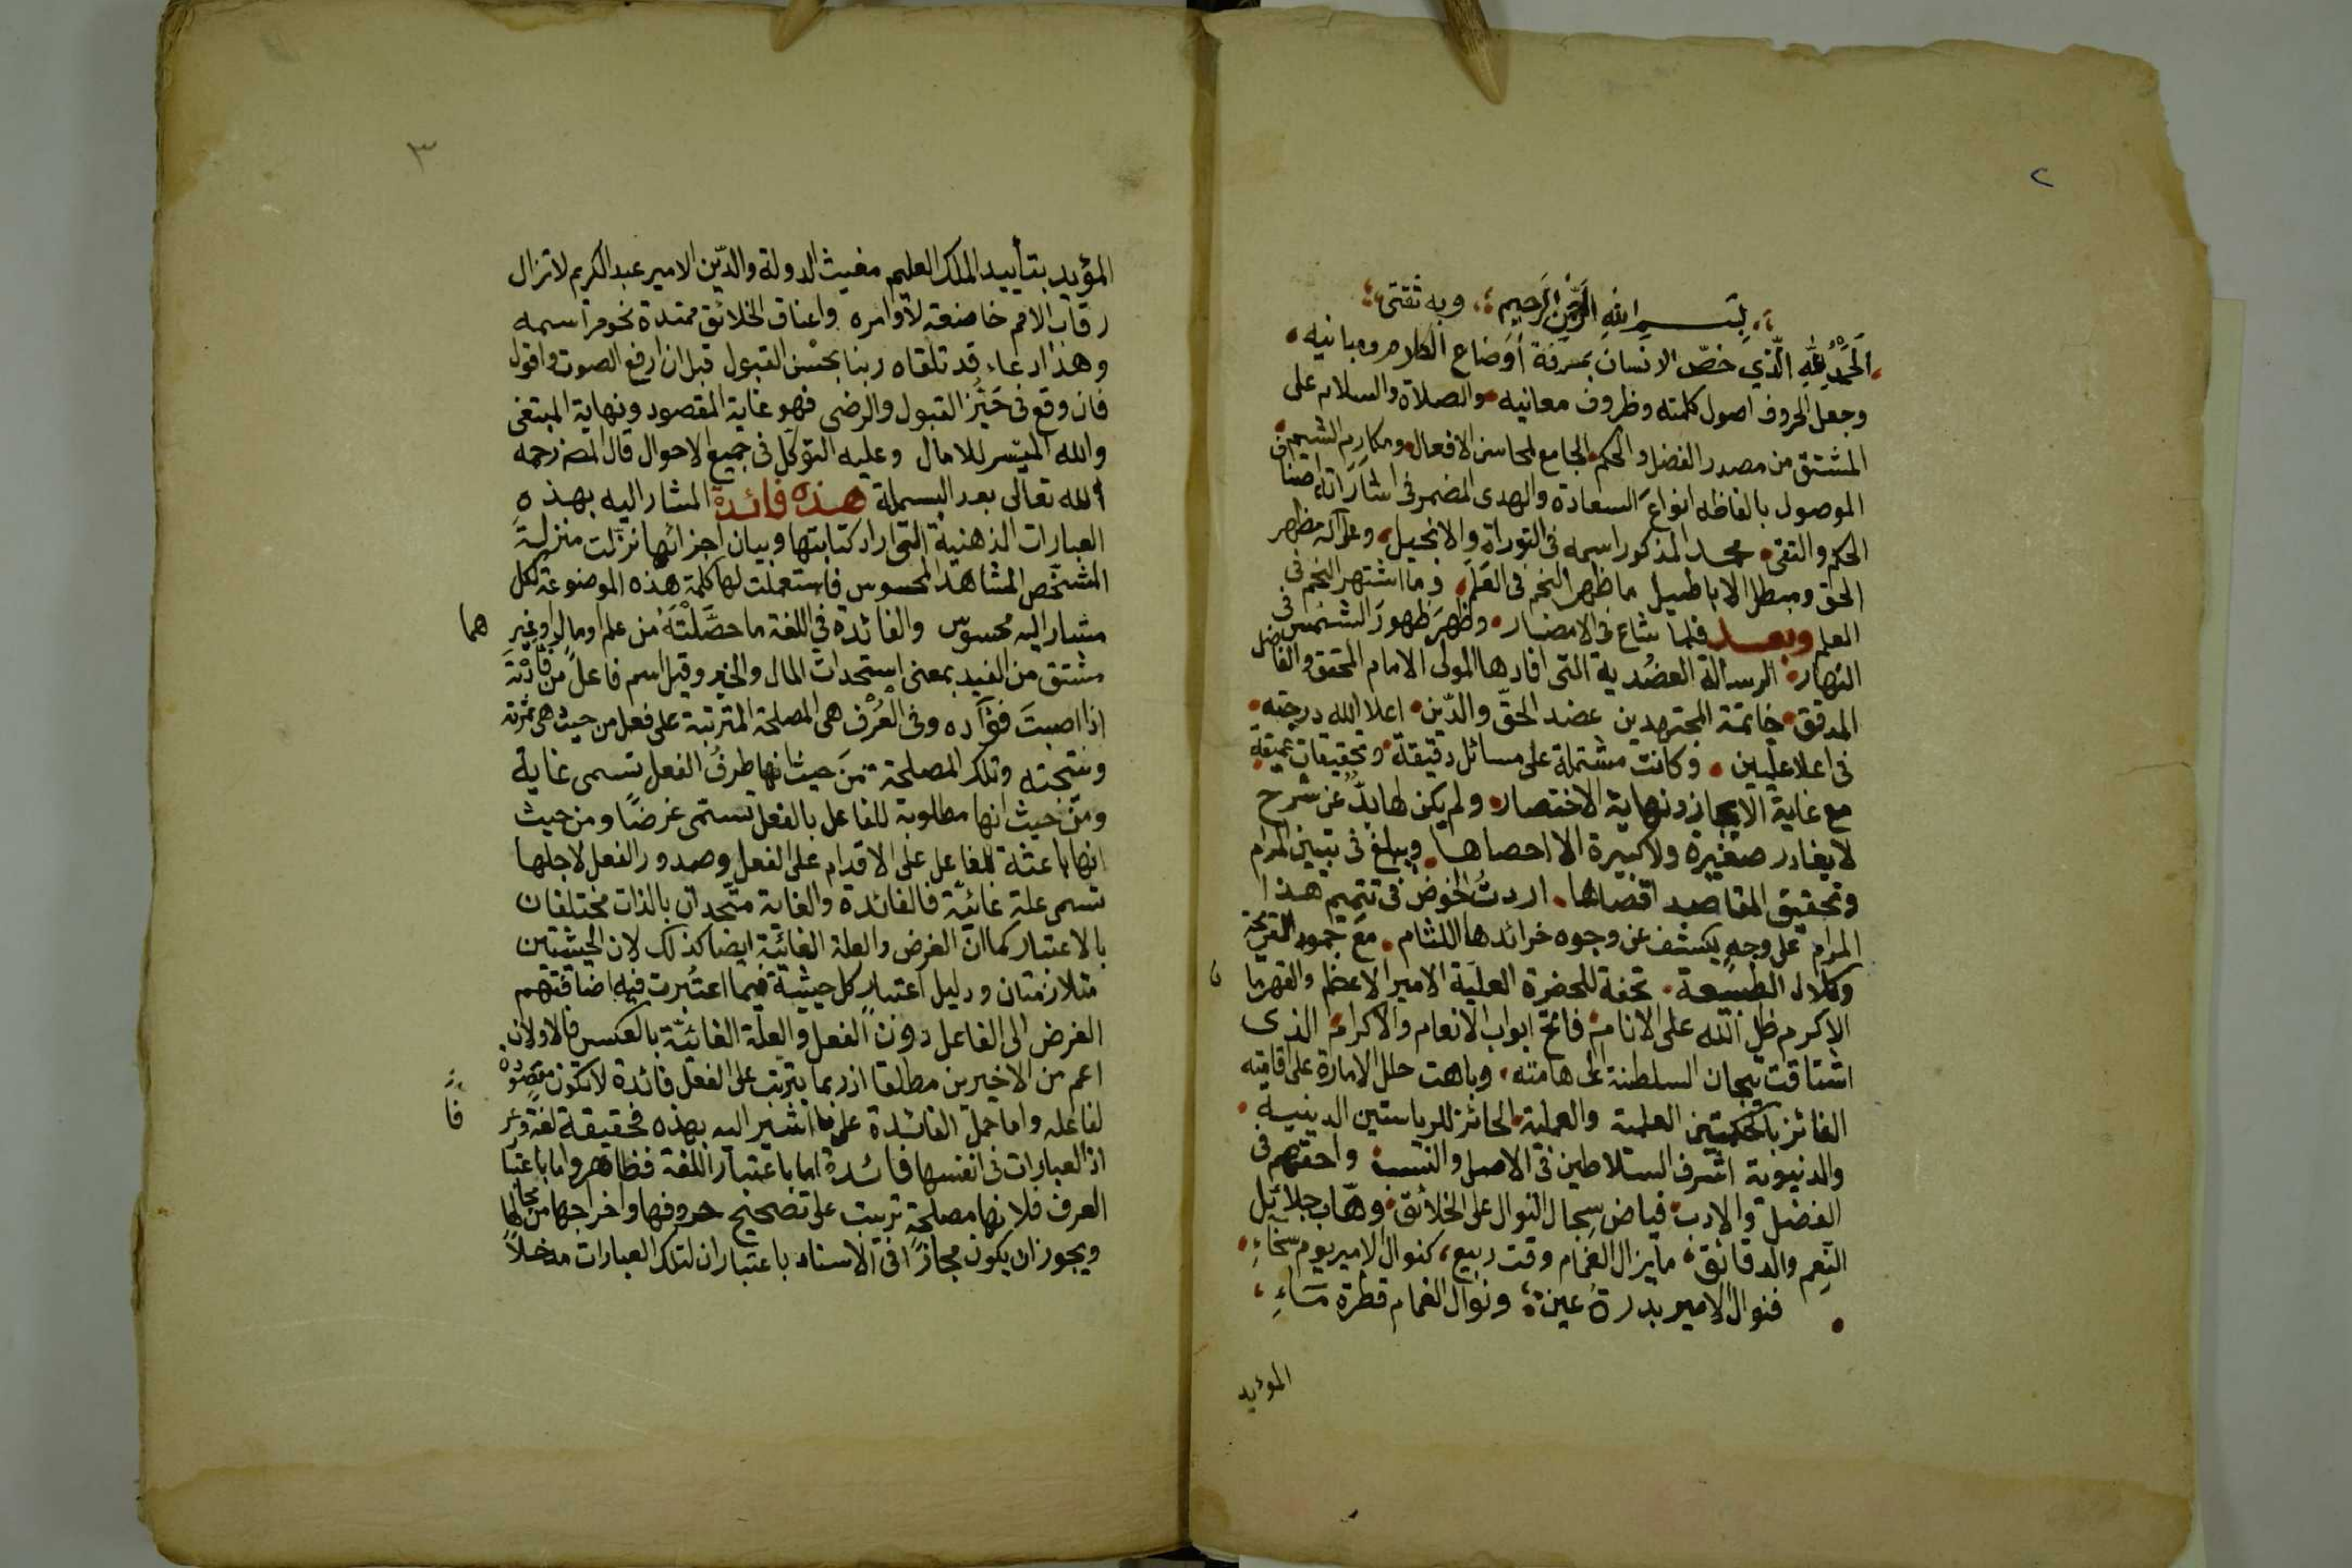 ٢
بسم الله الرحمن الرحيم وبه ثقتى
الحمد لله الذي خصّ الانسان بمعرفة أوضاع الكلام ومبانيه
وجعل الحروف اصول كلمته وظروف معانيه والصلاة والسلام على
المشتق من مصدر الفضل والحكم الجامع لمحاسن الافعال ومكارم الشيم
الموصول بالفاظه انواع السعادة والهدى المضمر فى اشاراته اصناف
الحكم والتقى محمد المذكور اسمه فى التوراة والانجيل وعلى آله مظهر
الحق ومبطل الاباطيل ما ظهر النجم فى العَلَم وما اشتهر النجم فى
العلم وبعـد فلما شاع فى الامصار وظهرَ ظهورَ الشمس فى
النهار الرسالة العضدية التى افادها المولى الامام المحقق والفاضل
المدقق خاتمة المجتهدين عضد الحقّ والدّين اعلا الله درجته
فى اعلا عليين وكانت مشتملة على مسائل دقيقة وتحقيقات عميقة
مع غاية الايجاز ونهاية الاختصار ولم يكن لها بدٌّ عن شرح
لا يغادر صغيرة ولا كبيرة الا احصاها ويبلغ فى تبيين المرام
وتحقيق المقاصد اقصاها اردتُ الخوض فى تتميم هذا
المرام على وجهٍ يكشف عن وجوه خرائدها اللثام مع جمود القريحة
وكلال الطبيعة تحفة للحضرة العليّة الامير الاعظم والقهرما
ن
الاكرم ظل الله على الانام فاتح ابواب الانعام والاكرام الذى
اشتاقت تيجان السلطنة الى هامته وباهت حلل الامارة على قامته
الفائز بالحكمتين العلمية والعملية الحائز للرياستين الدينية
والدنيوية اشرف السلاطين فى الاصل والنسب واحقهم فى
الفضل والادب فياض سجال النوال على الخلائق وهّاب جلائل
النِعم والدقائق ما يزال الغمام وقت ربيع كنوال الامير يوم سخاءِ
فنوال الامير بدرةُ عينٍ ونوال الغمام قطرة مَاءِ
المؤيد
٣
المؤيد بتأييد الملك العليم مغيث الدولة والدّين الامير عبد الكريم لا تزال
رقاب الامم خاضعة لأوامره واعناق الخلائق ممتدة نحو مراسمه
وهذا دعاء قد تلقاه ربنا بحسْن القبول قبل ان ارفع الصوت واقول
فان وقع فى حَيّزِ القبول والرضى فهو غاية المقصود ونهاية المبتغى
والله الميسر للامال وعليه التوكّل فى جميع الاحوال قال المص رحمه
الله تعالى بعد البسملة هذه فائدة المشار اليه بهذه
العبارات الذهنية التى اراد كتابتها وبيان اجزائها نزّلت منزلة
المشخّص المشاهد المحسوس فاستعملت لها كلمة هذه الموضوعة لكل
مشار اليه محسوس والفائدة في اللغة ما حصَّلْتَهُ من علم او مال او غير
هما
مشتق من الفيد بمعنى استحداث المال والخير وقيل اسم فاعل من فَأَدْتَهُ
اذا اصبتَ فؤآده وفى الْعُرْف هى المصلحة المترتبة على فعل من حيث هى ثمرته
ونتيجته وتلك المصلحة من حيث انها طرفُ الفعل تسمى غاية
ومن حيث انها مطلوبة للفاعل بالفعل تسمّى غرضًا ومن حيث
انها باعثة للفاعل على الاقدام على الفعل وصدور الفعل لاجلها
تسمى علة غائيّة فالفائدة والغاية متّحدان بالذات مختلفان
بالاعتبار كما انّ الغرض والعلة الغائيّة ايضا كذلك لان الحيثيتين
متلازمتان ودليل اعتبار كل حيثية فيما اعتُبرت فيه اضافتهم
الغرض الى الفاعل دون الفعل والعلّة الغائيّة بالعكس فالاولان
اعم من الاخيرين مطلقا اذ ربما يترتب على الفعل فائدة لا تكون مقصودة
لفاعله واما حمل الفائدة على ما اشير اليه بهذه فحقيقة لغةً وعر
فاً
اذ العبارات فى انفسها فائدة اما باعتبار اللغة فظاهر واما باعتبا
العرف فلانها مصلحةٍ ترتبت على تصحيح حروفها واخراجها من مخارجها
ويجوز ان يكون مجازًا فى الاسناد باعتبار ان لتلك العبارات مدخلاً